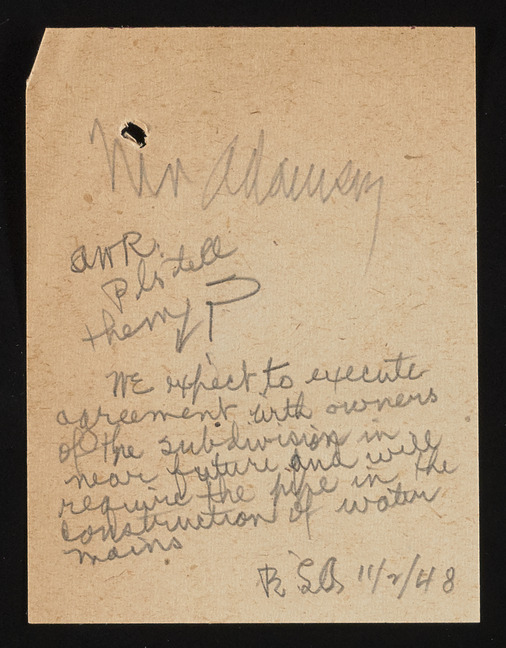 Mr Adamson
AWR.
Pls tell
them
P
WE expect to execute
agreement with owners
of the subdivision in
near future and will
require the pipe in the
construction of water
mains
11/2/48